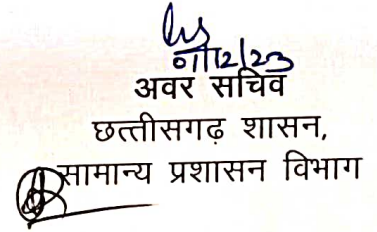 01/12/23
अवर सचिव
छत्तीसगढ़ शासन,
सामान्य प्रशासन विभाग